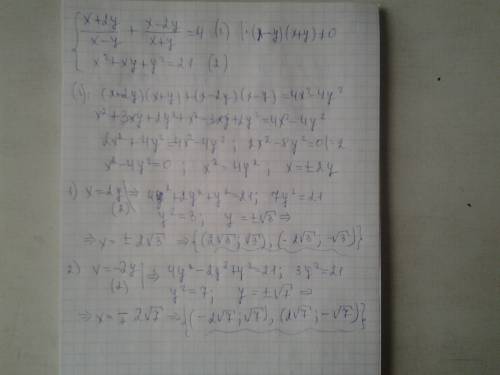 { (x+2y)/(x-y) + (x-2y)/(x+y) = 4 (1) |·(x-y)(x+y)≠0
x²+xy+y²=21 (2)
(1): (x+2y)(x+y)+(x-2y)(x-y)=4x²-4y²
x²+3xy+2y²+x²-3xy+2y²=4x²-4y²
2x²+4y²=4x²-4y²; 2x²-8y²=0|:2
x²-4y²=0; x²=4y²; x=±2y
1) x=2y (2) ⇒ 4y²+2y²+y²=21; 7y²=21
y²=3; y=±√3 ⇒
⇒ x=±2√3 ⇒ {(2√3;√3), (-2√3;-√3)}
2) x=-2y (2) ⇒ 4y²-2y²+y²=21; 3y²=21
y²=7; y=±√7 ⇒
⇒ x=∓2√7 ⇒ {(-2√7;√7), (2√7;-√7)}